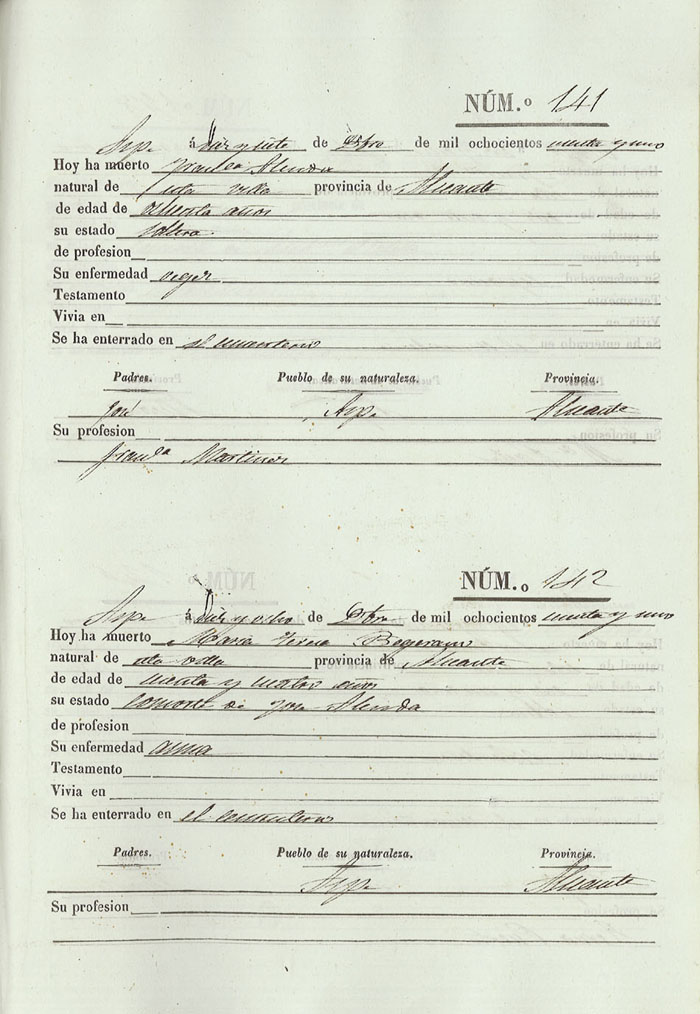 NÚM.º 141
Aspe á Diez y siete de Dbre de mil ochocientos y uno
Hoy ha muerto Franca Alenda
natural de esta villa provincia de Alicante
de edad de ochenta años
su estado soltera
de profesion
Su enfermedad vegez
Testamento
Vivia en
Se ha enterrado en el cementerio
Padres. Pueblo de su naturaleza. Provincia.
José Aspe Alicante
Su profesion
Franca Martinez
NÚM.º 142
Aspe á Diez y ocho de Dbre de mil ochocientos y uno
Hoy ha muerto Maria Teresa
natural de esta villa provincia de Alicante
de edad de y cuatro años
su estado consorte de José Alenda
de profesion
Su enfermedad asma
Testamento
Vivia en
Se ha enterrado en el cementerio
Padres. Pueblo de su naturaleza. Provincia.
Aspe Alicante
Su profesion